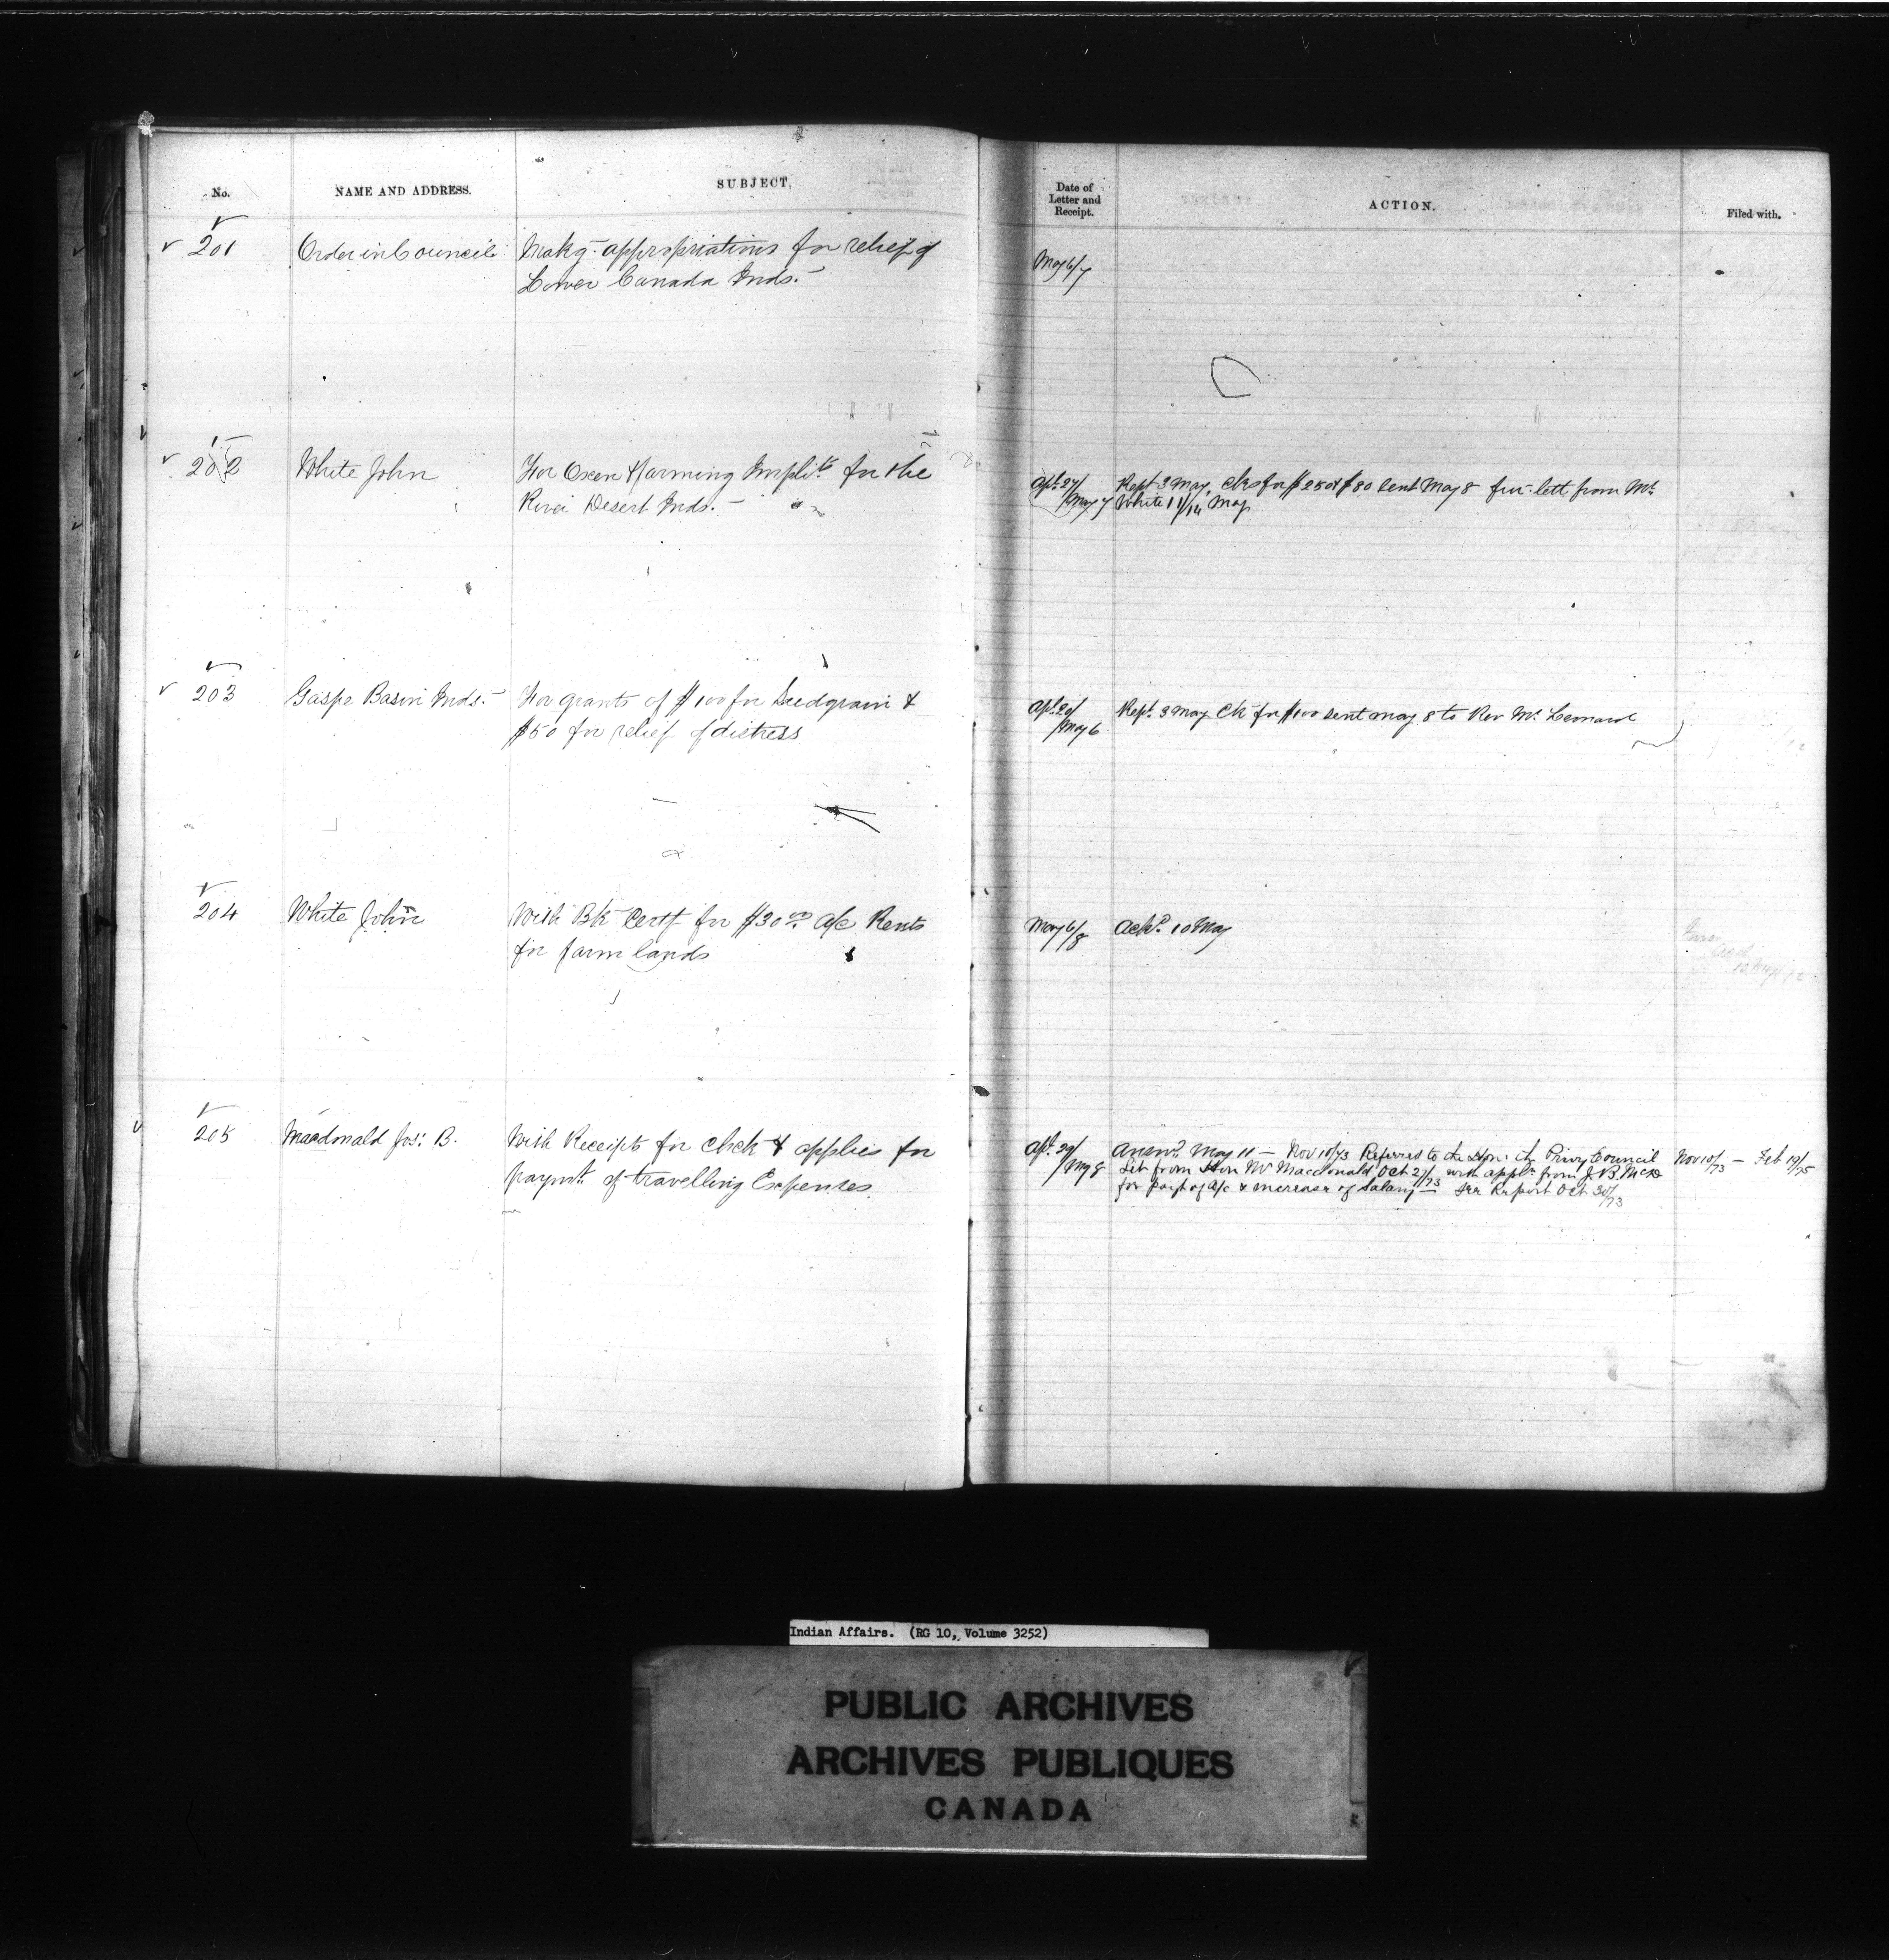 No. NAME AND ADDRESS. SUBJECT. Date of Letter and Receipt. ACTION. Filed with.
201 Order in Council Makg appropriations for relief of May 6/7
Lower Canada Inds.
202 White John For Oxen & farming Implts for the Apl 27/ Rept 3 May, Cks for $250 & $80 sent May 8 fur. lett from Mr.
River Desert Inds. May 7 White 11/14 May
203 Gaspe Basin Inds. For grants of $100 for Seedgrain & Apl 20/ Rept. 3 May Ck for $100 sent May 8 to Rev Mr. Leonard
$50 for relief of distress May 6
204 White John With Bk Certf for $30.00 a/c Rents May 6/8 Ackd. 10 May
for farm lands
205 Macdonald Jos: B. With Receipts for Check & applies for Apl. 29/ Answd. May 11 — Nov 10/73 Referred to the Hon: the Privy Council Nov 10/73 — Feb 19/75
paymt. of travelling Expenses May 8 Let from Hon Mr Macdonald Oct 27/73 with appln from J. B. McD
for payt of a/c & increase of Salary — See Report Oct 30/73
Indian Affairs. (RG 10, Volume 3252)
PUBLIC ARCHIVES
ARCHIVES PUBLIQUES
CANADA